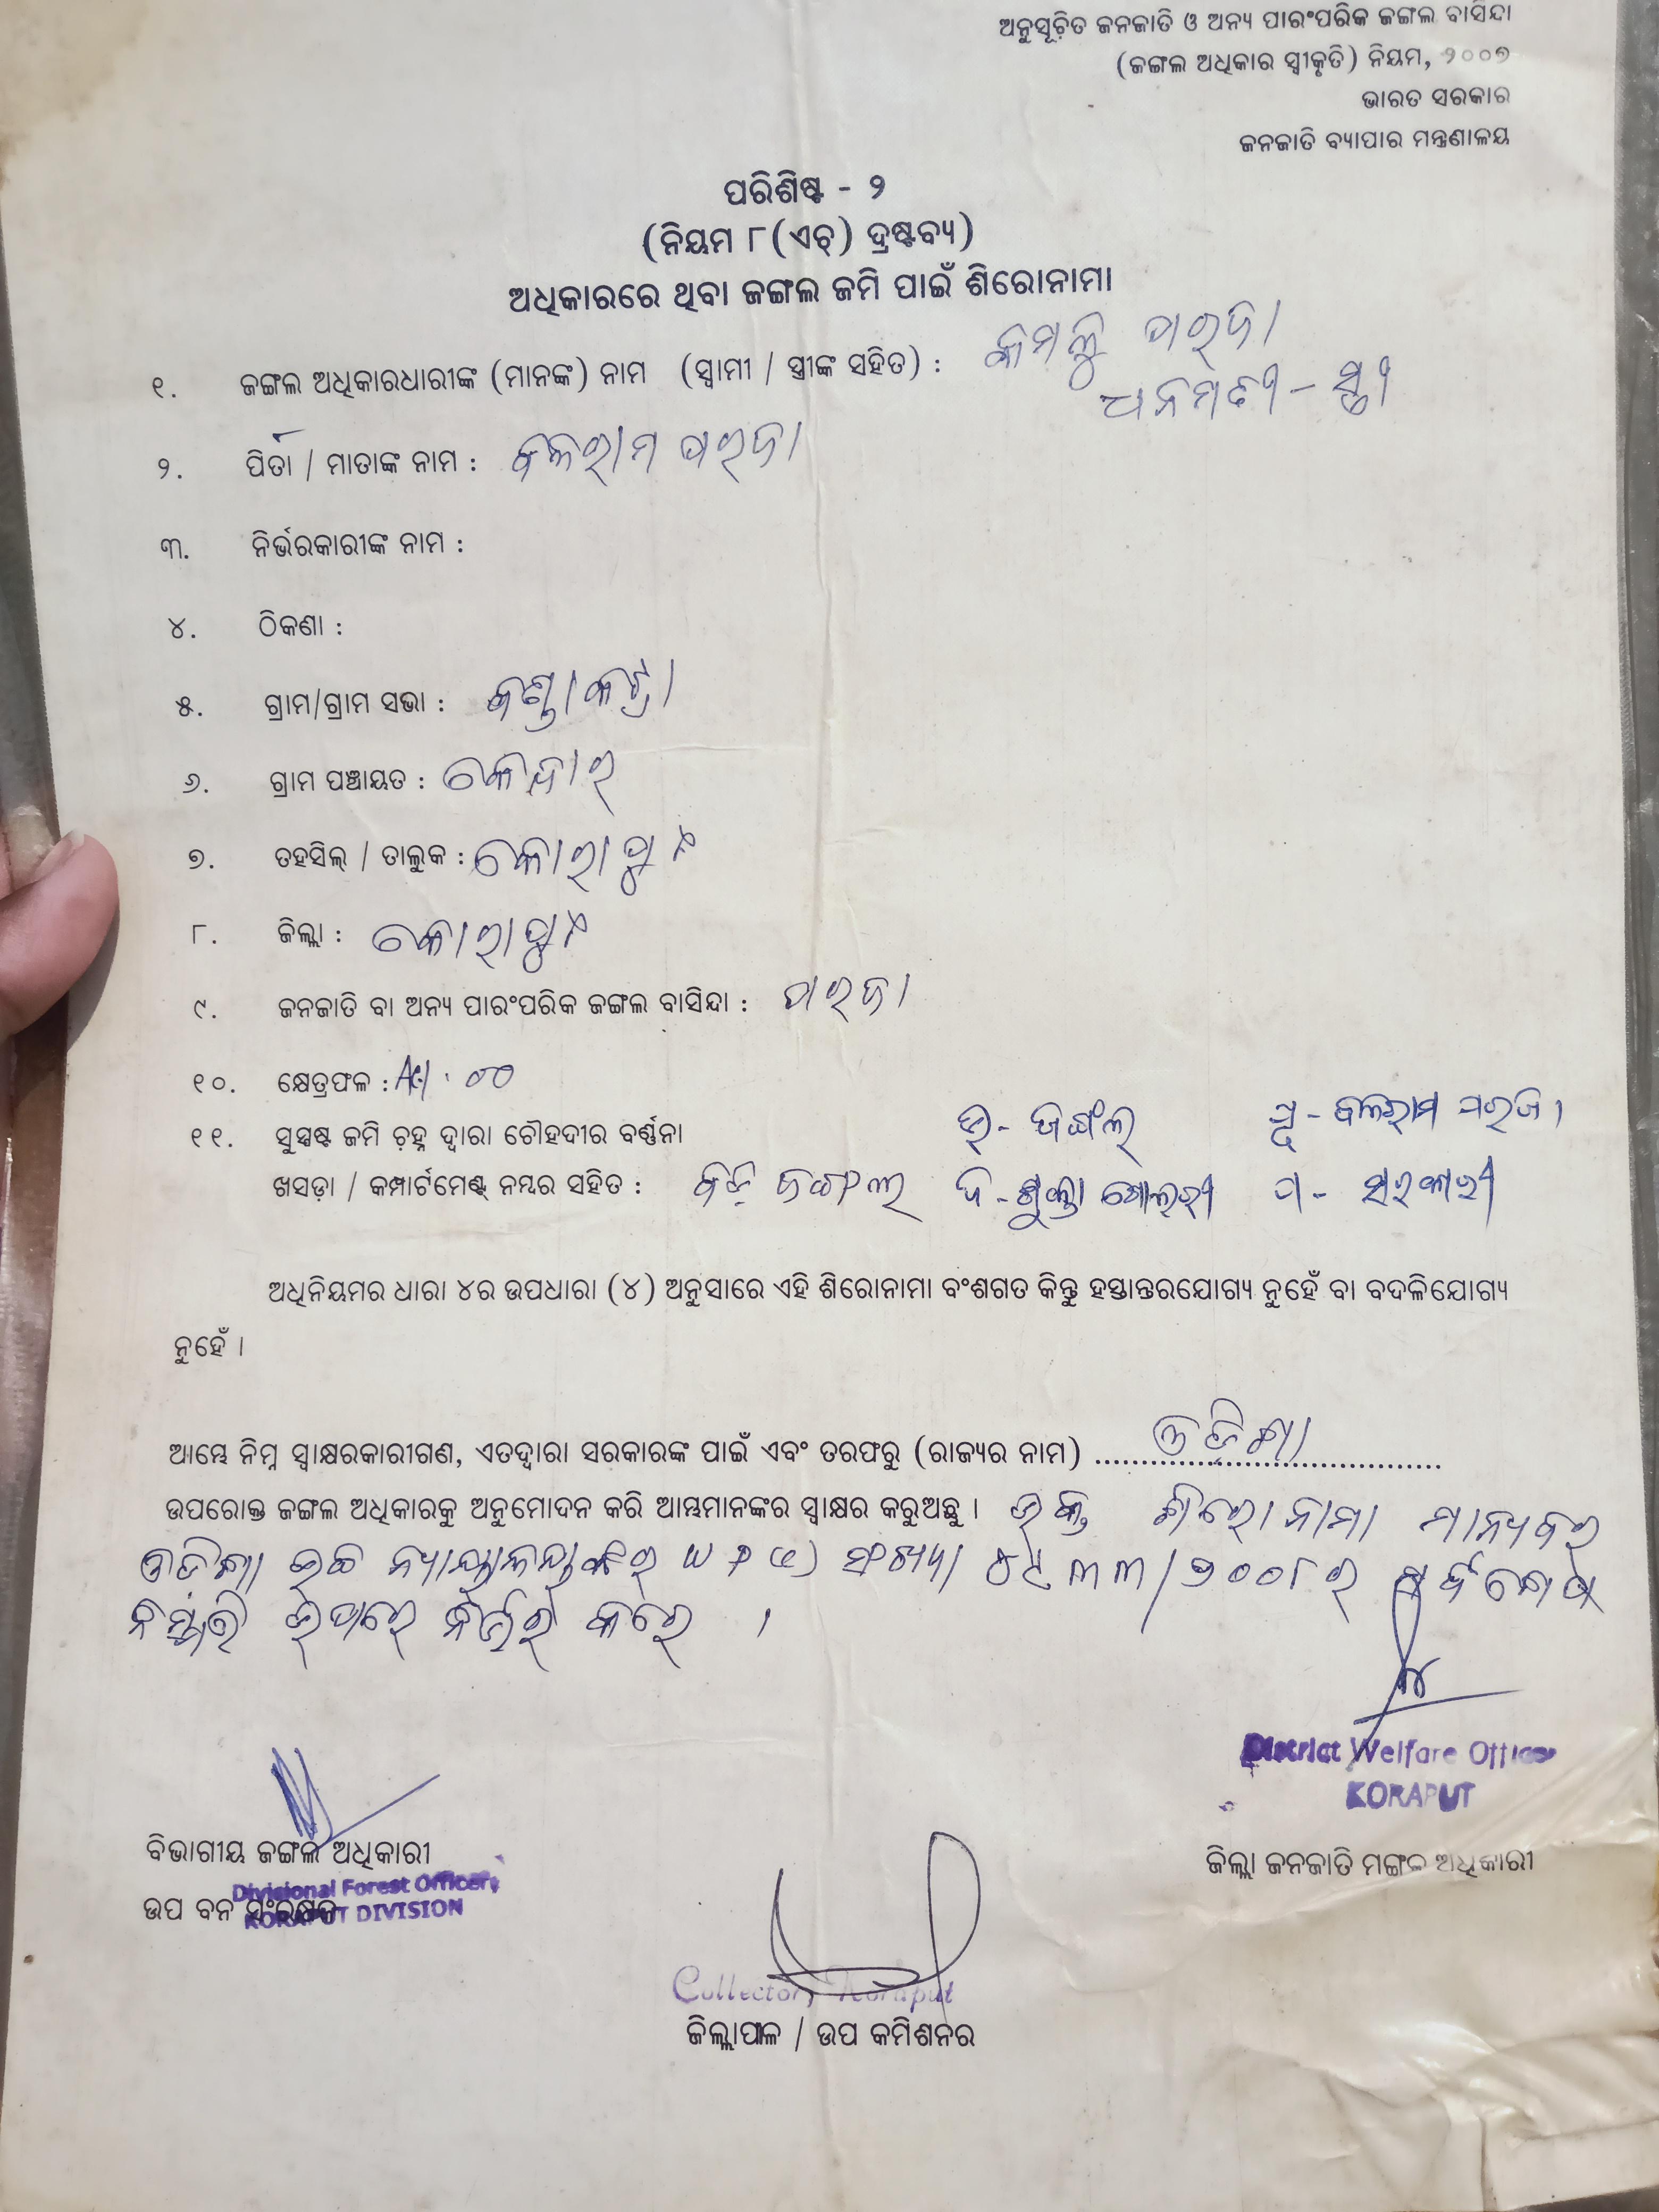 ଅନୁସୂଚିତ ଜନଜାତି ଓ ଅନ୍ୟ ପାରଂପରିକ ଜଙ୍ଗଲ ବାସିନ୍ଦା
(ଜଙ୍ଗଲ ଅଧିକାର ସ୍ୱୀକୃତି) ନିୟମ, ୨୦୦୭
ଭାରତ ସରକାର
ଜନଜାତି ବ୍ୟାପାର ମନ୍ତ୍ରଣାଳୟ
ପରିଶିଷ୍ଟ - ୨
(ନିୟମ ୮(ଏଚ୍) ଦ୍ରଷ୍ଟବ୍ୟ)
ଅଧିକାରରେ ଥିବା ଜଙ୍ଗଲ ଜମି ପାଇଁ ଶିରୋନାମା
୧. ଜଙ୍ଗଲ ଅଧିକାରଧାରୀଙ୍କ (ମାନଙ୍କ) ନାମ (ସ୍ୱାମୀ / ସ୍ତ୍ରୀଙ୍କ ସହିତ) : ପରଜା
୨. ପିତା / ମାତାଙ୍କ ନାମ : ବଳରାମ ପରଜା
୩. ନିର୍ଭରକାରୀଙ୍କ ନାମ :
୪. ଠିକଣା :
୫. ଗ୍ରାମ/ଗ୍ରାମ ସଭା :
୬. ଗ୍ରାମ ପଞ୍ଚାୟତ : କେନ୍ଦାର
୭. ତହସିଲ୍ / ତାଲୁକ : କୋରାପୁଟ
୮. ଜିଲ୍ଲା : କୋରାପୁଟ
୯. ଜନଜାତି ବା ଅନ୍ୟ ପାରଂପରିକ ଜଙ୍ଗଲ ବାସିନ୍ଦା : ପରଜା
୧୦. କ୍ଷେତ୍ରଫଳ :
୧୧. ସୁସ୍ପଷ୍ଟ ଜମି ଚିହ୍ନ ଦ୍ୱାରା ଚୌହଦୀର ବର୍ଣ୍ଣନା ଉ - ଜଙ୍ଗଲ ପୂ - ବଳରାମ ପରଜା
ଖସଡ଼ା / କମ୍ପାର୍ଟମେଣ୍ଟ୍ ନମ୍ବର ସହିତ : ଜଙ୍ଗଲ ଦି - ପ - ସରକାରୀ
ଅଧିନିୟମର ଧାରା ୪ର ଉପଧାରା (୪) ଅନୁସାରେ ଏହି ଶିରୋନାମା ବଂଶଗତ କିନ୍ତୁ ହସ୍ତାନ୍ତରଯୋଗ୍ୟ ନୁହେଁ ବା ବଦଳିଯୋଗ୍ୟ
ନୁହେଁ ।
ଆମ୍ଭେ ନିମ୍ନ ସ୍ୱାକ୍ଷରକାରୀଗଣ, ଏତଦ୍ୱାରା ସରକାରଙ୍କ ପାଇଁ ଏବଂ ତରଫରୁ (ରାଜ୍ୟର ନାମ) ଓଡିଶା
ଉପରୋକ୍ତ ଜଙ୍ଗଲ ଅଧିକାରକୁ ଅନୁମୋଦନ କରି ଆମ୍ଭମାନଙ୍କର ସ୍ୱାକ୍ଷର କରୁଅଛୁ । ଉକ୍ତ ଶିରୋନାମା ମାନ୍ୟବର
ଓଡିଶା ଉଚ୍ଚ ନ୍ୟାୟାଳୟଙ୍କର W P (C) ସଂଖ୍ୟା ୪୯୩୩/୨୦୦୮ର
ଉପରେ ନିର୍ଭର କରେ ।
District Welfare Officer
KORAPUT
ଜିଲ୍ଲା ଜନଜାତି ମଙ୍ଗଳ ଅଧିକାରୀ
ବିଭାଗୀୟ ଜଙ୍ଗଲ ଅଧିକାରୀ
Divisional Forest Officer,
ଉପ ବନ ସଂରକ୍ଷକ
KORAPUT DIVISION
Collector, Koraput
ଜିଲ୍ଲାପାଳ / ଉପ କମିଶନର